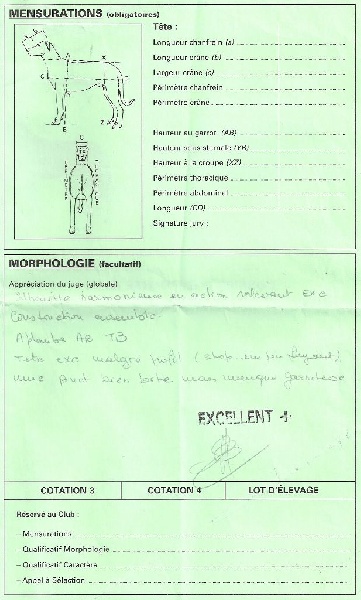 MENSURATIONS (obligatoires)
Tête :
Longueur chanfrein (a)
Longueur crâne (b)
Largeur crâne (c)
Périmètre chanfrein
Périmètre crâne
Hauteur au garrot (AB)
Hauteur sous sternale (YB)
Hauteur à la croupe (XZ)
Périmètre thoracique
Périmètre abdominal
Longueur (CD)
Signature jury :
MORPHOLOGIE (facultatif)
Appréciation du juge (globale)
Construction
Aplombs AR TB
Tête exc malgré profil (stop un peu
EXCELLENT
COTATION 3 COTATION 4 LOT D'ÉLEVAGE
Réservé au Club :
– Mensurations
– Qualificatif Morphologie
– Qualificatif Caractère
– Appel à Sélection